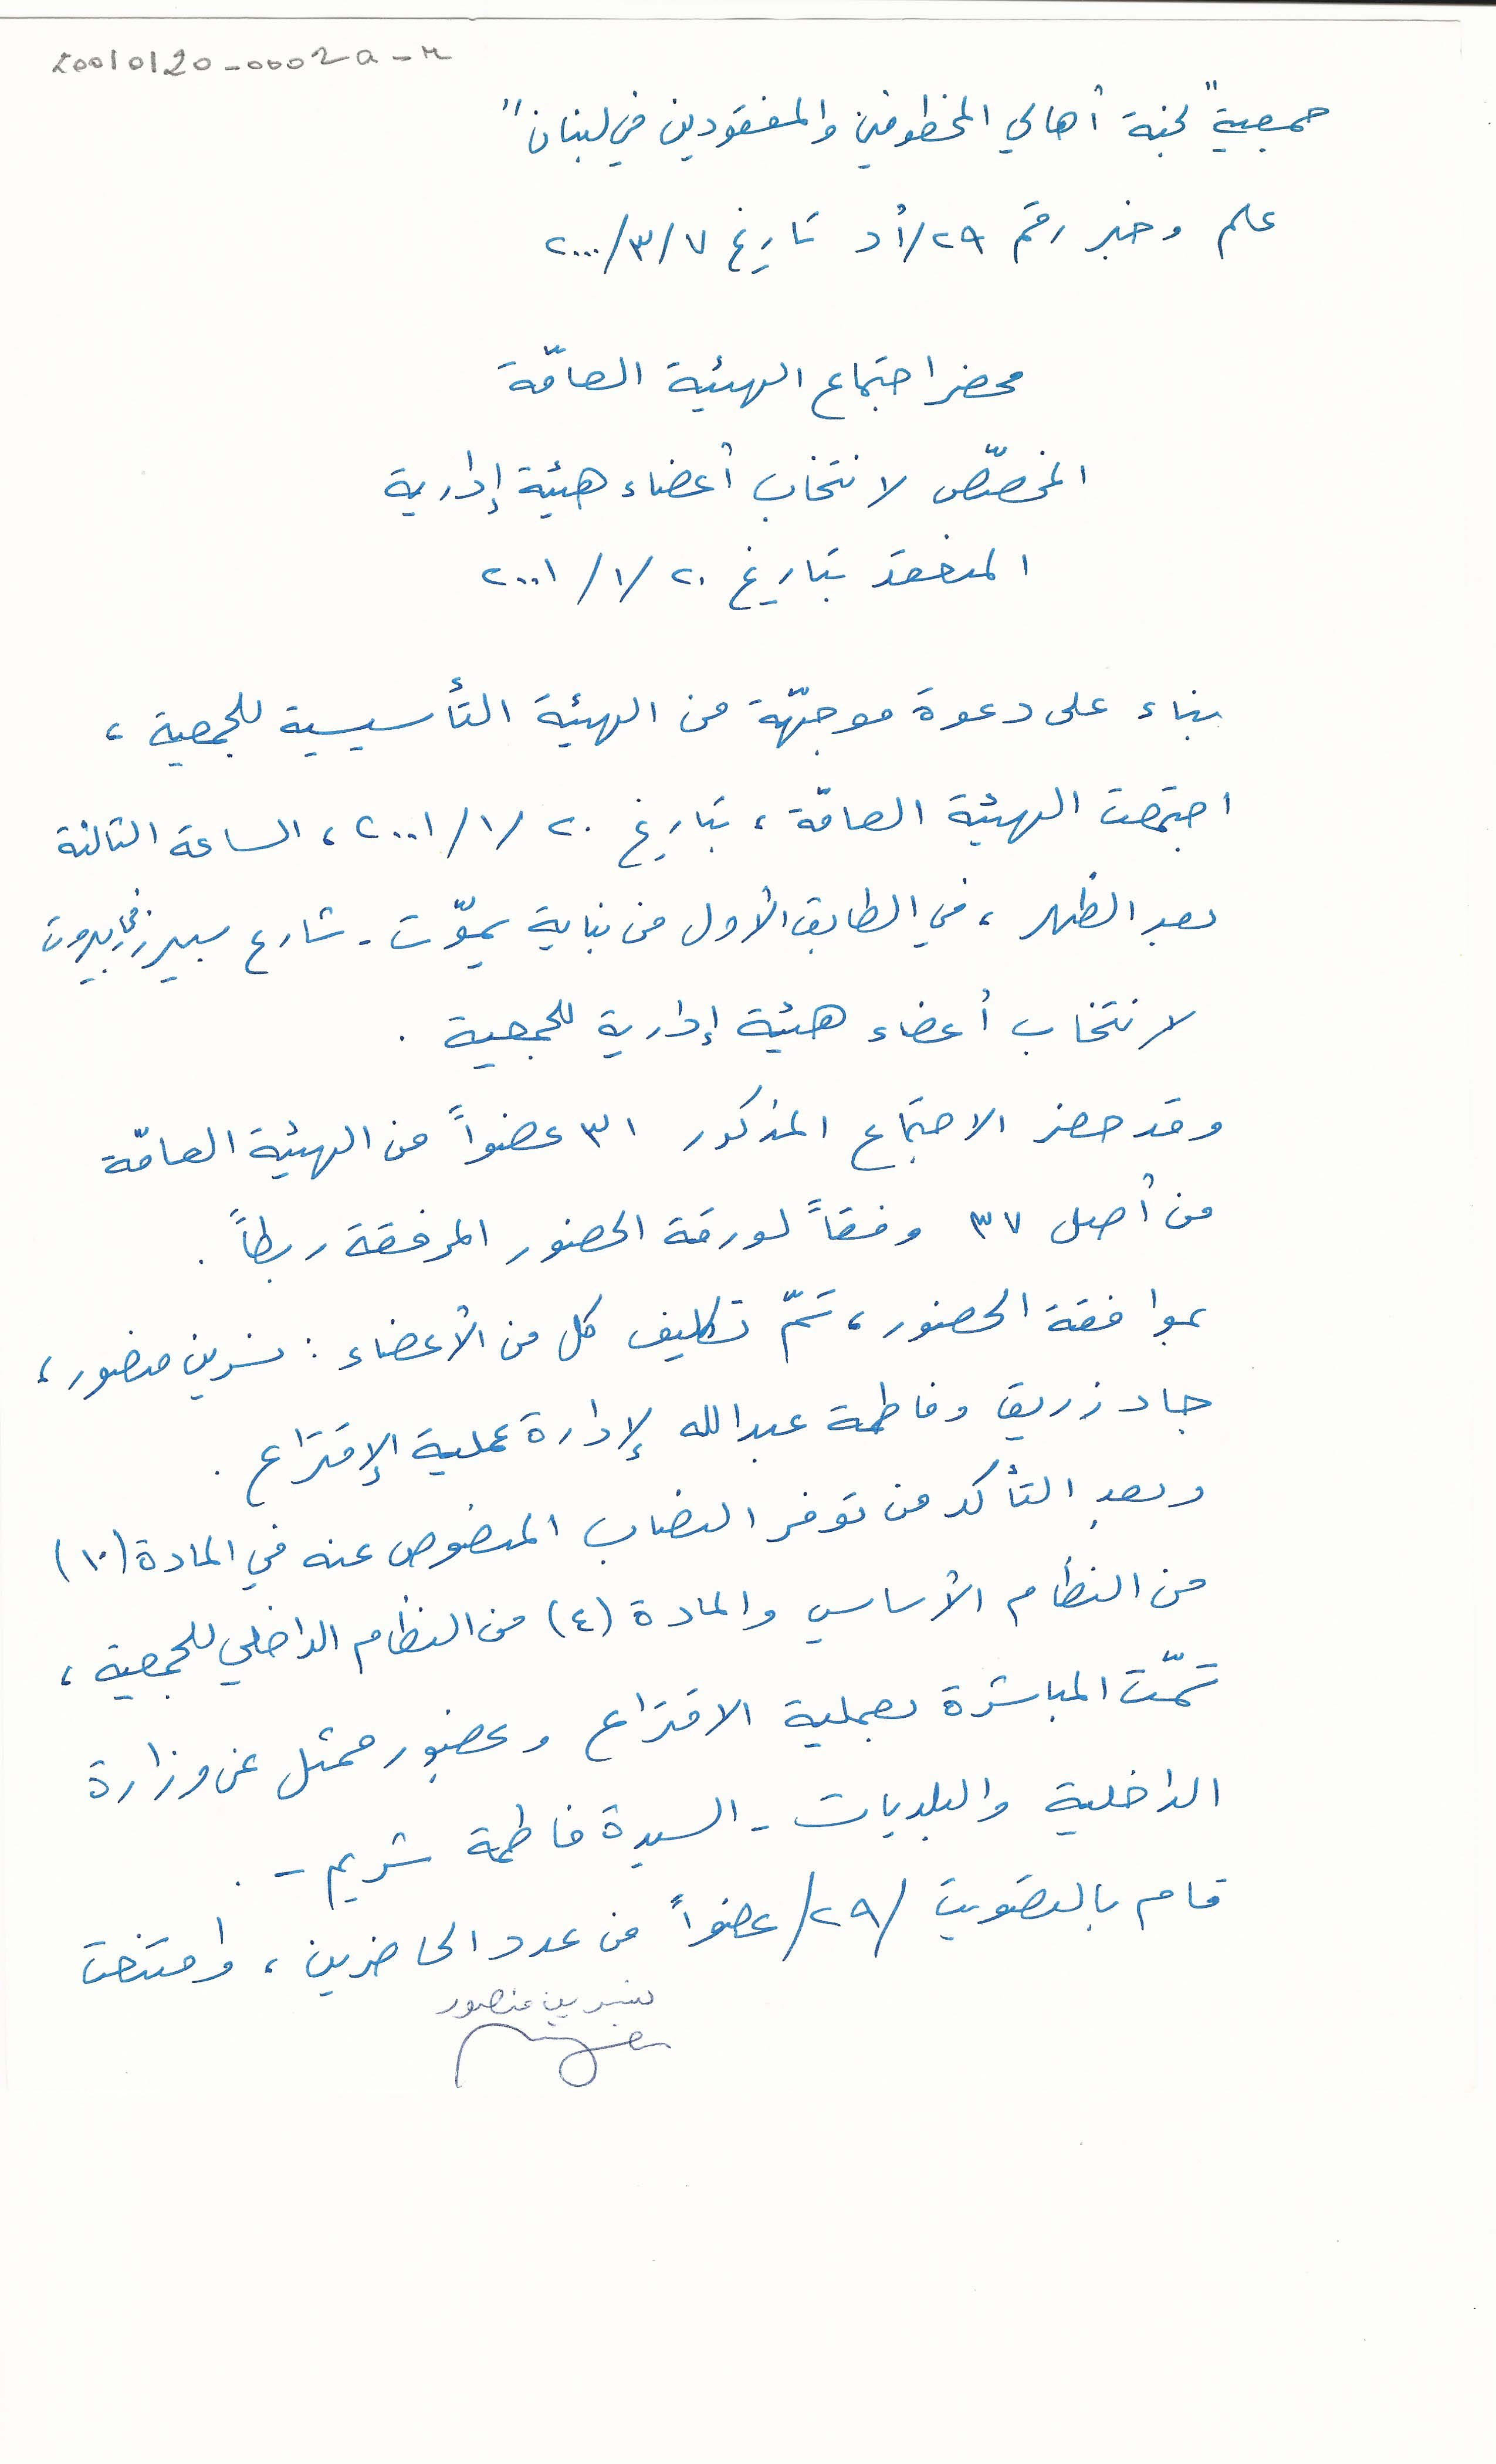 20010120-0002a-m
جمعية "لجنة أهالي المخطوفين والمفقودين في لبنان"
علم وخبر رقم ٢٩/أد تاريخ ٧/٣/٢٠٠٠
محضر اجتماع الهيئة العامّة
المخصّص لانتخاب أعضاء هيئة إدارية
المنعقد بتاريخ ٢٠/١/٢٠٠١
بناء على دعوة موجّهة من الهيئة التأسيسية للجمعية،
اجتمعت الهيئة العامّة، بتاريخ ٢٠/١/٢٠٠١، الساعة الثالثة
بعد الظهر، في الطابق الأول من بناية يمّوت - شارع سبيرز في بيروت
لانتخاب أعضاء هيئة إدارية للجمعية.
وقد حضر الاجتماع المذكور ٣١ عضواً من الهيئة العامّة
من أصل ٣٧ وفقاً لورقة الحضور المرفقة ربطاً.
بموافقة الحضور، تمّ تكليف كل من الأعضاء: نسرين منصور،
جاد زريق وفاطمة عبدالله لإدارة عملية الإقتراع.
وبعد التأكد من توفر النصاب المنصوص عنه في المادة (١٠)
من النظام الأساسي والمادة (٤) من النظام الداخلي للجمعية،
تمّت المباشرة بعملية الاقتراع وبحضور ممثل عن وزارة
الداخلية والبلديات - السيدة فاطمة شريم -.
قام بالتصويت /٢٩/ عضواً من عدد الحاضرين، وامتنعت
نسرين منصور